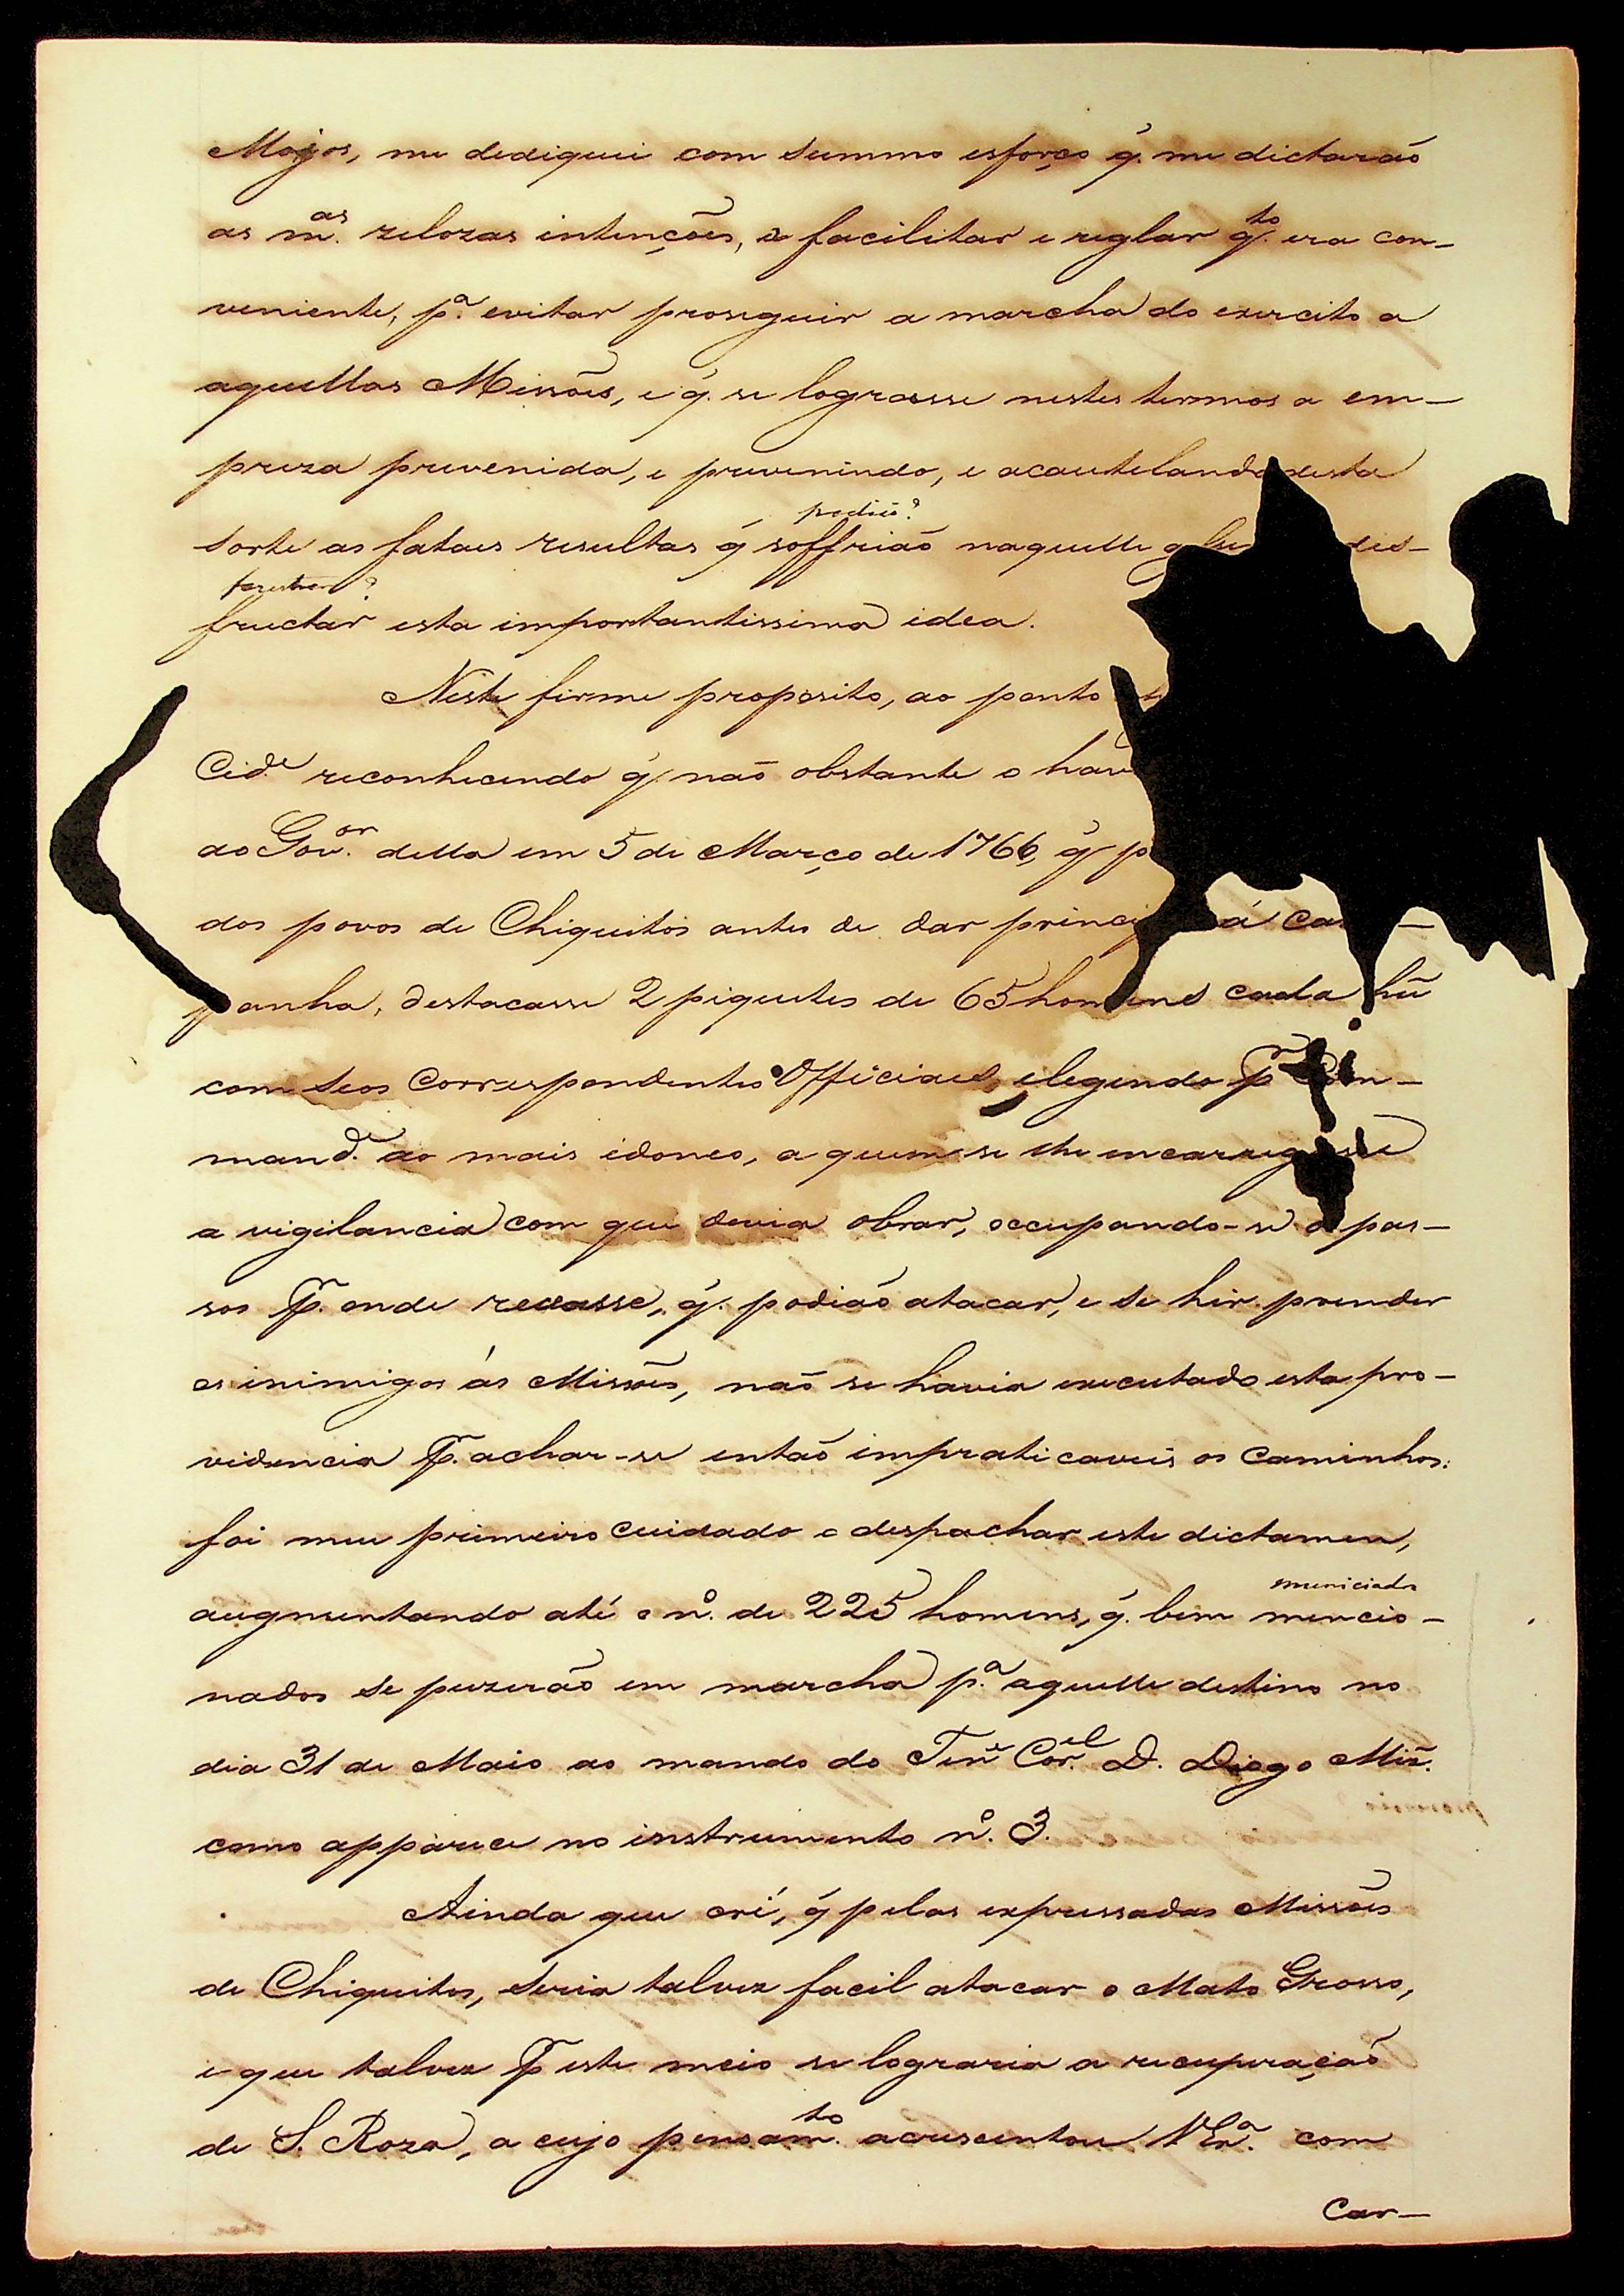 Mojos, me dediquei com summo esforço q̃. me dictarão
as m.as zelozas intenções, a facilitar e reglar q.to era con-
veniente, p.a evitar proseguir a marcha do exercito a
aquellas Missões, e q̃. se lograsse nestes termos a em-
preza prevenida, e prevenindo, e acautelando desta
podião?
sorte as fataes resultas q̃ soffrião naquelle dis-
fructar esta importantissima idea.
Neste firme proposito, ao ponto
Cid.e reconhecendo q̃ não obstante o hav
ao Gov.or della em 5 de Março de 1766, q̃ p
dos povos de Chiquitos antes de dar princi á Ca -
panha, destacasse 2 piquetes de 65 homens cada hũ
com seos correspondentes Officiaes, elegendo p.r Com-
mand.e ao mais idoneo, a quem se lhe encarregasse
a vigilancia com que devia obrar, occupando-se os pas-
sos p.r onde recasse, q̃. podião atacar, e se hir prender
os inimigos ás Missões, não se havia executado esta pro-
videncia p.r achar-se então impraticaveis os Caminhos:
foi meu primeiro cuidado o despachar este dictamen,
municiados
augmentando até o n.o de 225 homens, q̃. bem mencio-
nados se puzerão em marcha p.a aquelle destino no
dia 31 de Maio ao mando do Ten.e Cor.el D. Diogo Miz̃.
como apparece no instrumento n.o 3.
Ainda que cri, q̃ pelas expressadas Missões
de Chiquitos, seria talvez facil atacar o Mato Grosso,
e que talvez p.r este meio se lograria a recuperação
de S. Roza, a cujo pensam.to acrescentou V Ex.a com
Car-